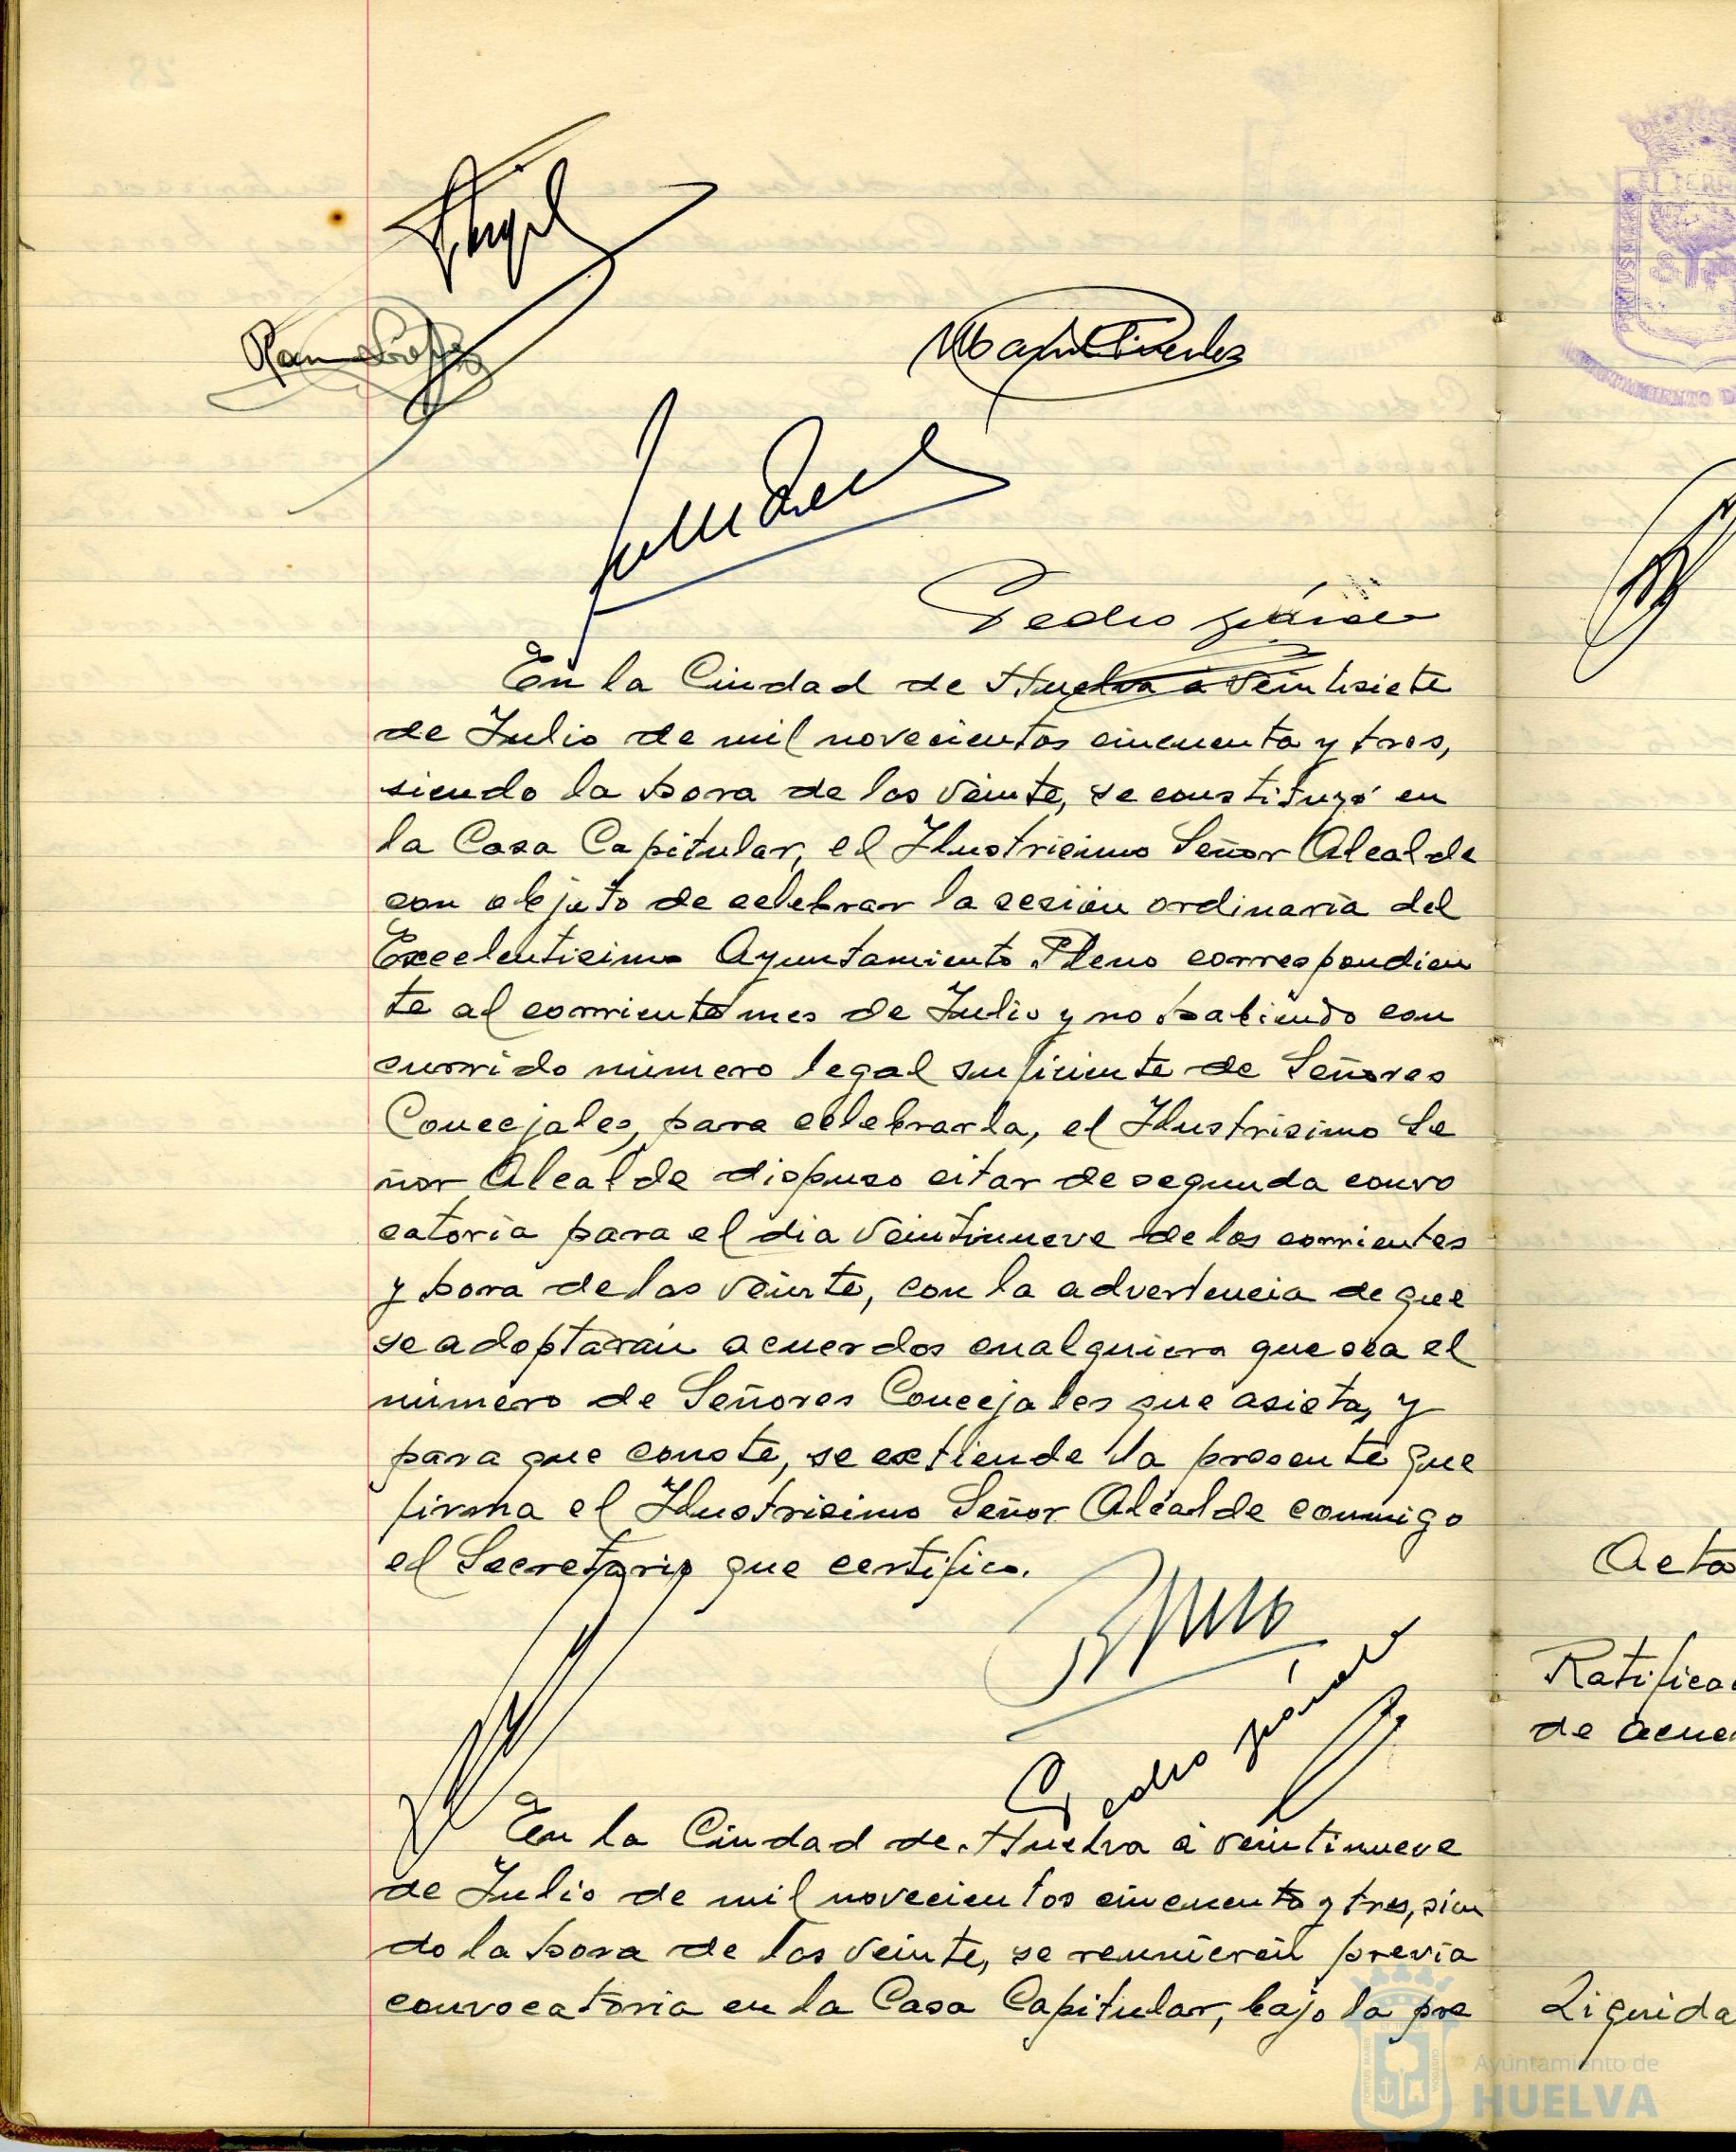 Pedro
En la Ciudad de Huelva a veintisiete
de Julio de mil novecientos cincuenta y tres,
siendo la hora de las veinte, se constituyó en
la Casa Capitular, el Ilustrisimo Señor Alcalde
con objeto de celebrar la sesión ordinaria del
Excelentisimo Ayuntamiento Pleno correspondien
te al corriente mes de Julio y no habiendo con
currido número legal suficiente de Señores
Concejales, para celebrarla, el Ilustrisimo Se
ñor Alcalde dispuso citar de segunda convo
catoria para el dia veintinueve de los corrientes
y hora de las veinte, con la advertencia de que
se adoptarán acuerdos cualquiera que sea el
número de Señores Concejales que asista, y
para que conste, se extiende la presente que
firma el Ilustrisimo Señor Alcalde conmigo
el Secretario que certifico.
Pedro
En la Ciudad de Huelva a veintinueve
de Julio de mil novecientos cincuenta y tres, sien
do la hora de las veinte, se reunierón previa
convocatoria en la Casa Capitular, bajo la pre
Acta
Ratifica
de acue
Liquida
Ayuntamiento de
HUELVA